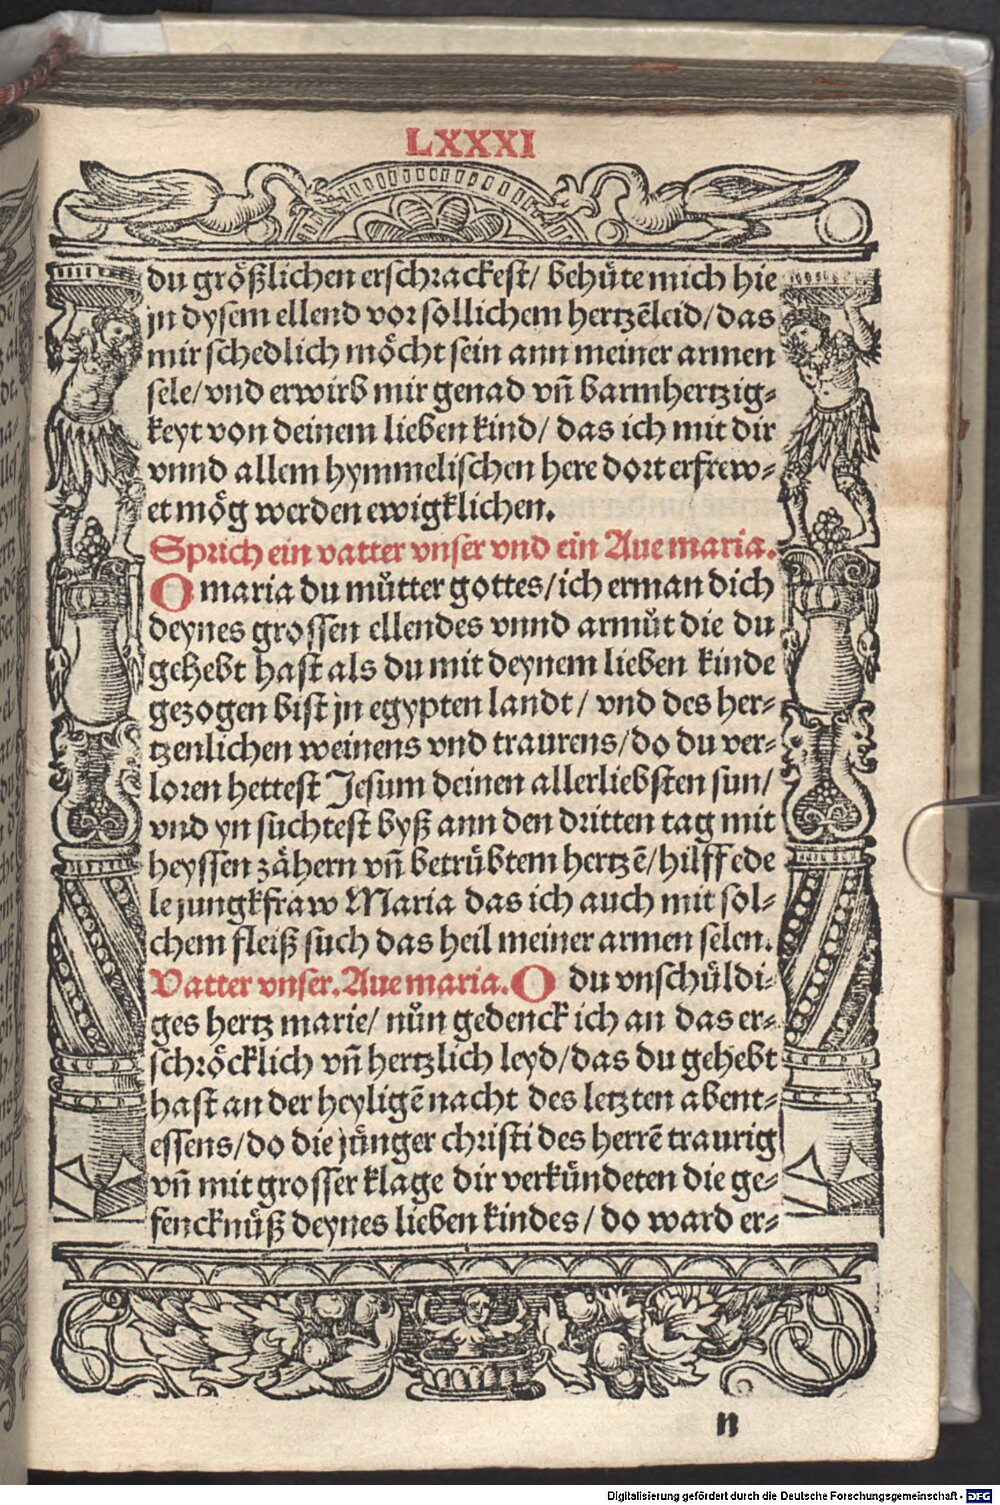 LXXXI
du größlichen erschrackest/ behüte mich hie
jn dysem ellend vor sollichem hertzẽleid/das
mir schedlich möcht sein ann meiner armen
sele/vnd erwirb mir genad vñ barmhertzig-
keyt von deinem lieben kind/ das ich mit dir
vnnd allem hymmelischen here dort erfrew-
et mög werden ewigklichen.
Sprich ein vatter vnser vnd ein Aue maria.
O maria du můtter gottes/ich erman dich
deynes grossen ellendes vnnd armůt die du
gehebt hast als du mit deynem lieben kinde
gezogen bist jn egypten landt/ vnd des her-
tzenlichen weinens vnd traurens/do du ver-
loren hettest Jesum deinen allerliebsten sun/
vnd yn suchtest byß ann den dritten tag mit
heyssen zähern vñ betrübtem hertzẽ/hilff ede
le jungkfraw Maria das ich auch mit sol-
chem fleiß such das heil meiner armen selen.
Vatter vnser. Aue maria. O du vnschüldi-
ges hertz marie/ nůn gedenck ich an das er-
schröcklich vñ hertzlich leyd/das du gehebt
hast an der heyligẽ nacht des letzten abent-
essens/do die jünger christi des herrẽ traurig
vñ mit grosser klage dir verkündeten die ge-
fencknüß deynes lieben kindes/ do ward er-
n
Digitalisierung gefördert durch die Deutsche Forschungsgemeinschaft - DFG